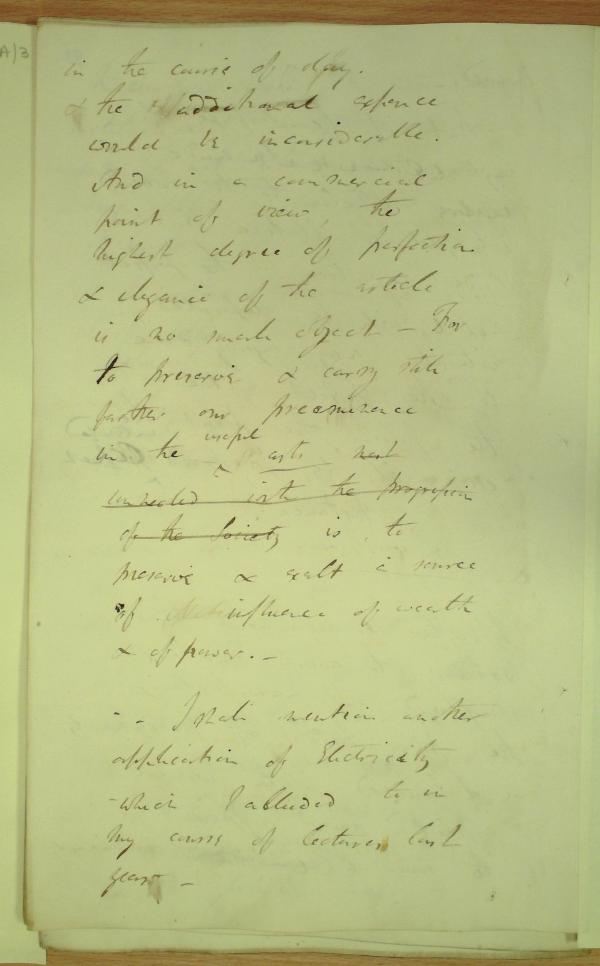 A/3
in the course of a day.
& the additional expence
would be inconsiderable.
And in a commercial
point of view, the
highest degree of perfection
& elegance of the article
is no small object – For
to preserve & carry still
farther our preeminence
in the useful arts
connected with the progression
of the Society is to
preserve & exalt a source
of influence of wealth
& of power. –
– – I shall mention another
application of Electricity
– which I alluded to in
my course of lectures last
year –